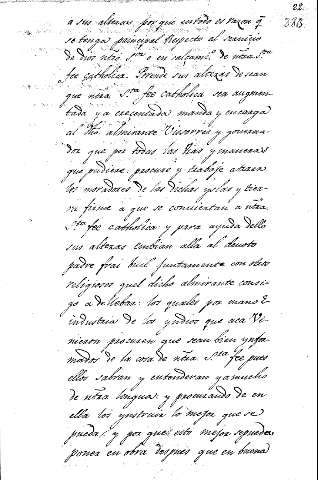 22.
383
a sus altezas por que en todo es razon q.
se tenga principal respecto al servicio
de dios ntro S.or e en ensalzam.to de ntra S.ta
fee Catholica. Porende sus altezas desean
que ntra S.ta fee Catholica sea augmen-
tada y acrescentada manda y encarga
al dho almirante Visorrey y governa-
dor que por todas las vias y maneras
que pudiere procure y trabaje atraer
los moradores de las dichas yslas y tier-
ra firme a que se conviertan a ntra
S.ta fee catholica y para ayuda dello
sus altezas embian alla al devoto
padre frai buil juntamente con otros
religiosos quel dicho almirante consi-
go a de lebar: los quales por mano e
industria de los yndios que aca Vi-
nieron procuren que sean bien ynfor-
mados de la cosas de ntra S.ta fee pues
ellos sabran y entenderan ya mucho
de ntra lengua; y procurando de en
ella los ynstruir lo mejor que se
pueda; y por que esto mejor se pueda
poner en obra despues que en buena